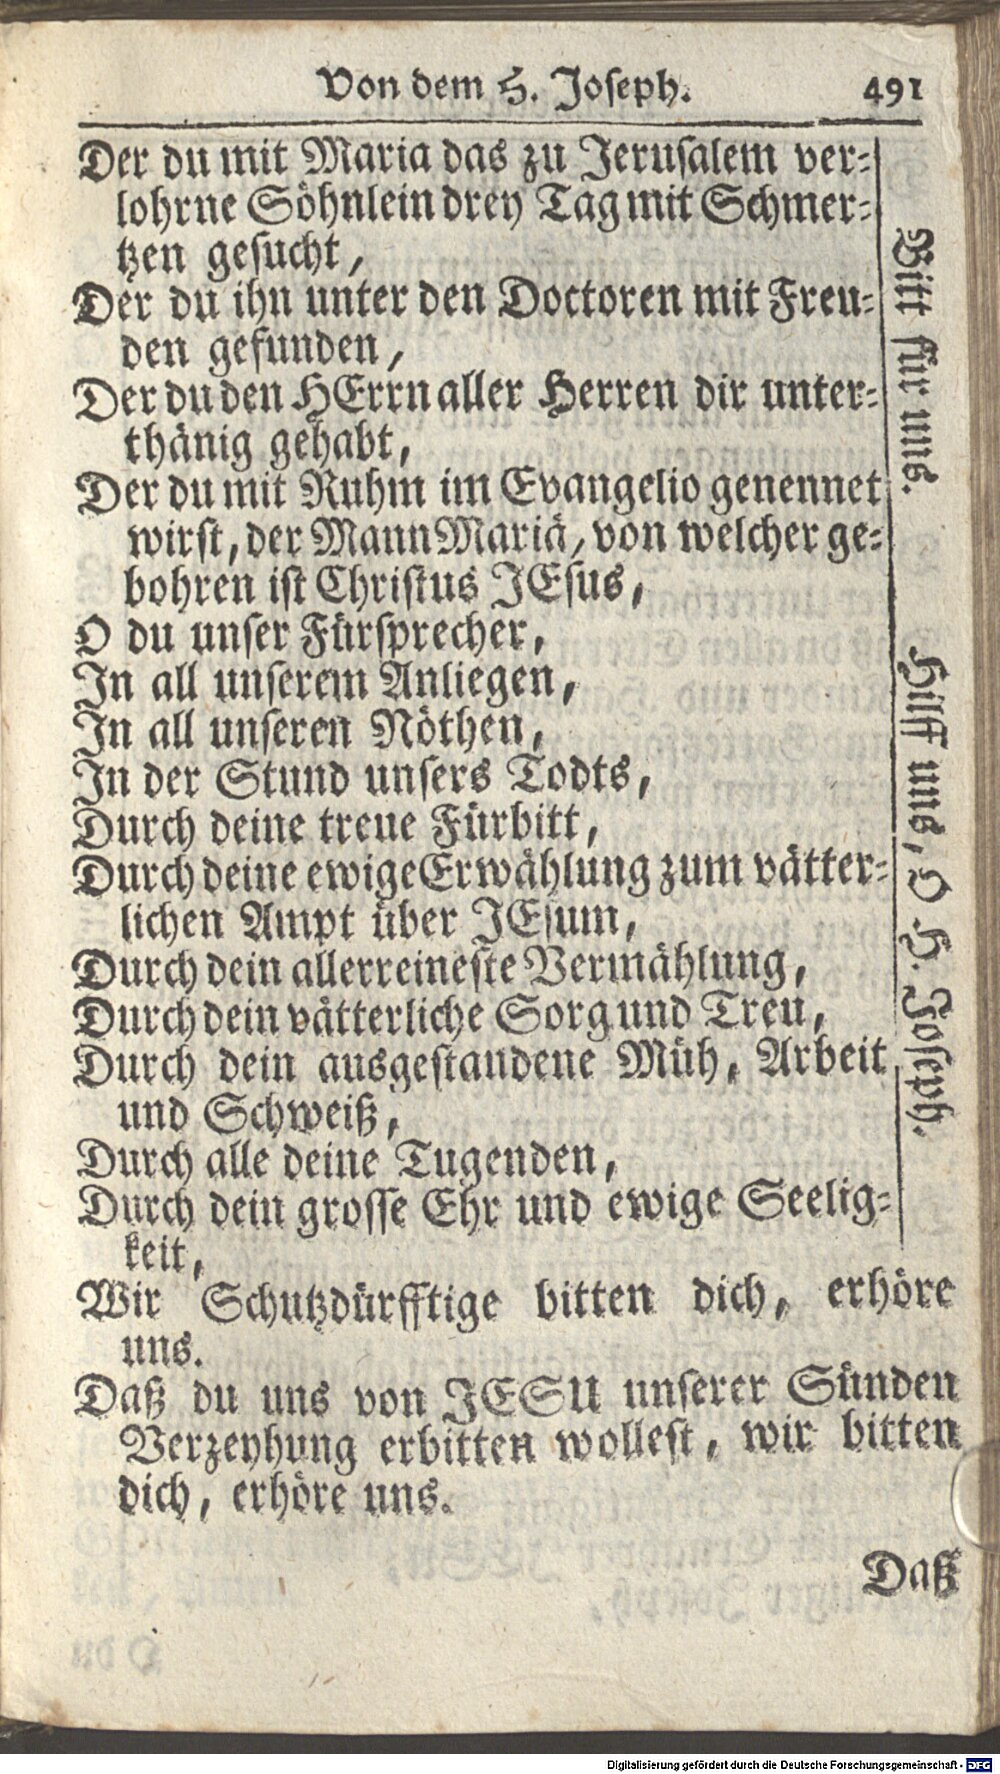 Von dem H. Joseph. 491
Der du mit Maria das zu Jerusalem ver-
lohrne Söhnlein drey Tag mit Schmer-
tzen gesucht,
Der du ihn unter den Doctoren mit Freu-
den gefunden,
Der du den HErrn aller Herren dir unter-
thänig gehabt,
Der du mit Ruhm im Evangelio genennet
wirst, der Mann Mariä, von welcher ge-
bohren ist Christus JEsus,
O du unser Fürsprecher,
In all unserem Anliegen,
In all unseren Nöthen,
In der Stund unsers Todts,
Durch deine treue Fürbitt,
Durch deine ewige Erwählung zum vätter-
lichen Ampt über JEsum,
Durch dein allerreineste Vermählung,
Durch dein vätterliche Sorg und Treu,
Durch dein ausgestandene Müh, Arbeit
und Schweiß,
Durch alle deine Tugenden,
Durch dein grosse Ehr und ewige Seelig-
keit,
Bitt für uns.
Hilff uns, O H. Joseph.
Wir Schutzdürfftige bitten dich, erhöre
uns.
Daß du uns von JESU unserer Sünden
Verzeyhung erbitten wollest, wir bitten
dich, erhöre uns.
Daß
Digitalisierung gefördert durch die Deutsche Forschungsgemeinschaft - DFG